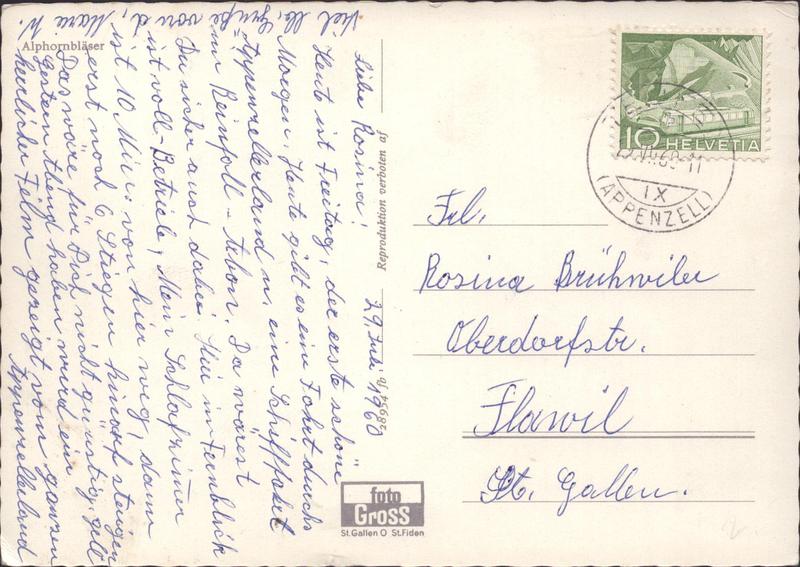 Alphornbläser
Liebe Rosina! 29. Juli 1960
Heute ist Freitag, der erste schöne
Morgen. Heute gibt es eine Fahrt durchs
Appenzellerland u. eine Schifffahrt
am Reinfall - Tobor. Da wärest
Du sicher auch dabei. Hier im Fernblick
ist voll-Betrieb, Mein Schlafzimer
ist 10 Min. von hier weg, dann
erst noch 6 Stiegen hinauf steigen
Das wäre für Dich nicht günstig, gell
Gestern Abend haben wurd ein
herrlicher Film gezeigt vom ganzen
Appenzellerland
Viel lb, Grüße von d, Marie W.
Reproduktion verboten af
28954
foto
Gross
St.Gallen O St.Fiden
10 HELVETIA
60-11
IX
(APPENZELL)
Frl.
Rosina Brühwiler
Oberdorfstr.
Flawil
St. Gallen.